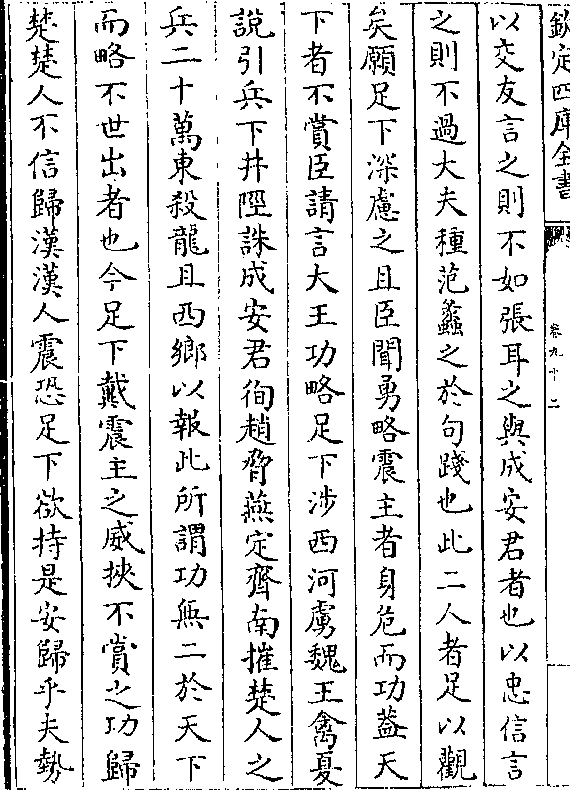 欽定四庫全書
卷九十二
以交友言之則不如張耳之與成安君者也以忠信言
之則不過大夫種范蠡之於句踐也此二人者足以觀
矣願足下深慮之且臣聞勇略震主者身危而功蓋天
下者不賞臣請言大王功略足下涉西河虜魏王禽夏
說引兵下井陘誅成安君徇趙脅燕定齊南摧楚人之
兵二十萬東殺龍且西鄉以報此所謂功無二於天下
而略不世出者也今足下戴震主之威挾不賞之功歸
楚楚人不信歸漢漢人震恐足下欲持是安歸乎夫勢